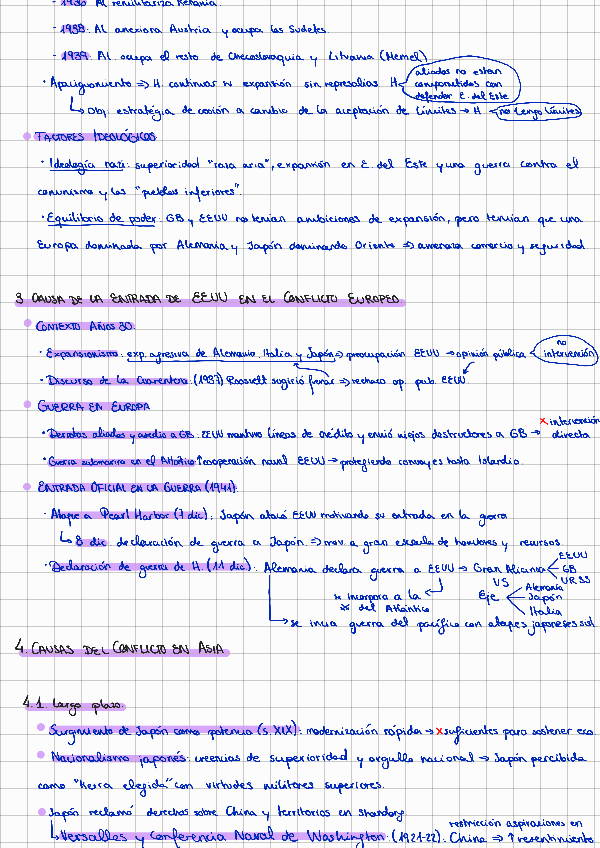 - 1936 Al remilitariza Renania.
- 1938: Al anexiona Austria y ocupa los Sudetes.
- 1939: Al ocupa el resto de Checoslovaquia y Lituania (Memel)
· Apaciguamiento => H continuar su expansión sin represalias H
aliados no estan comprometidos con defender E. del Este
↳ Obj: estratégia de cesión a cambio de la aceptación de límites → H no tengo límites
FACTORES IDEOLÓGICOS
· Ideología nazi: superioridad "raza aria", expansión en E. del Este y una guerra contra el
comunismo y los "pueblos inferiores".
· Equilibrio de poder: GB y EEUU no tenían ambiciones de expansión, pero temían que una
Europa dominada por Alemania y Japón dominando Oriente => amenaza comercio y seguridad
3 CAUSA DE LA ENTRADA DE EEUU EN EL CONFLICTO EUROPEO
CONTEXTO AÑOS 30:
· Expansionismo: exp. agresiva de Alemania, Italia y Japón => preocupación EEUU → opinión pública no intervención
· Discurso de la Cuarentena: (1937) Roosevelt sugirió frenar => rechazo op. pub. EEUU
GUERRA EN EUROPA
· Derrotas aliadas y asedio a GB: EEUU mantuvo líneas de crédito y envió viejos destructores a GB → x intervención directa
· Guerra submarina en el Atlántico ↑ cooperación naval EEUU → protegiendo convoyes hasta Islandia.
ENTRADA OFICIAL EN LA GUERRA (1941)
· Ataque a Pearl Harbor (7 dic): Japón atacó EEUU motivando su entrada en la guerra
↳ 8 dic declaración de guerra a Japón => mov. a gran escala de hombres y recursos.
· Declaración de guerra de H. (11 dic): Alemania declara guerra a EEUU → Gran Alianza EEUU GB URSS
VS
Eje Alemania Japón Italia
se incorpora a la
del Atlántico
↳ se inicia guerra del pacífico con ataques japoneses
4. CAUSAS DEL CONFLICTO EN ASIA
4.1. Largo plazo:
Surgimiento de Japón como potencia (s XIX): modernización rápida → x suficientes para sostener eco.
Nacionalismo japonés: creencias de superioridad y orgullo nacional → Japón percibida
como "tierra elegida" con virtudes militares superiores.
Japón reclamó derechos sobre China y territorios en Shandong
↳ Versalles y Conferencia Naval de Washington: (1921-22): restricción aspiraciones en China => ↑ resentimiento